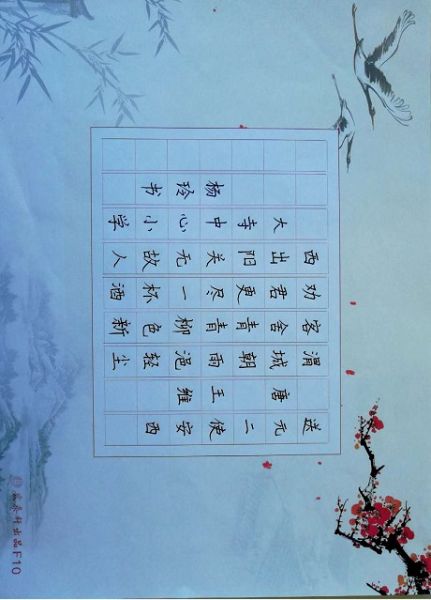 送元二使安西
唐 王维
渭城朝雨浥轻尘
客舍青青柳色新
劝君更尽一杯酒
西出阳关无故人
大寺中心小学
杨玲书
出品F10